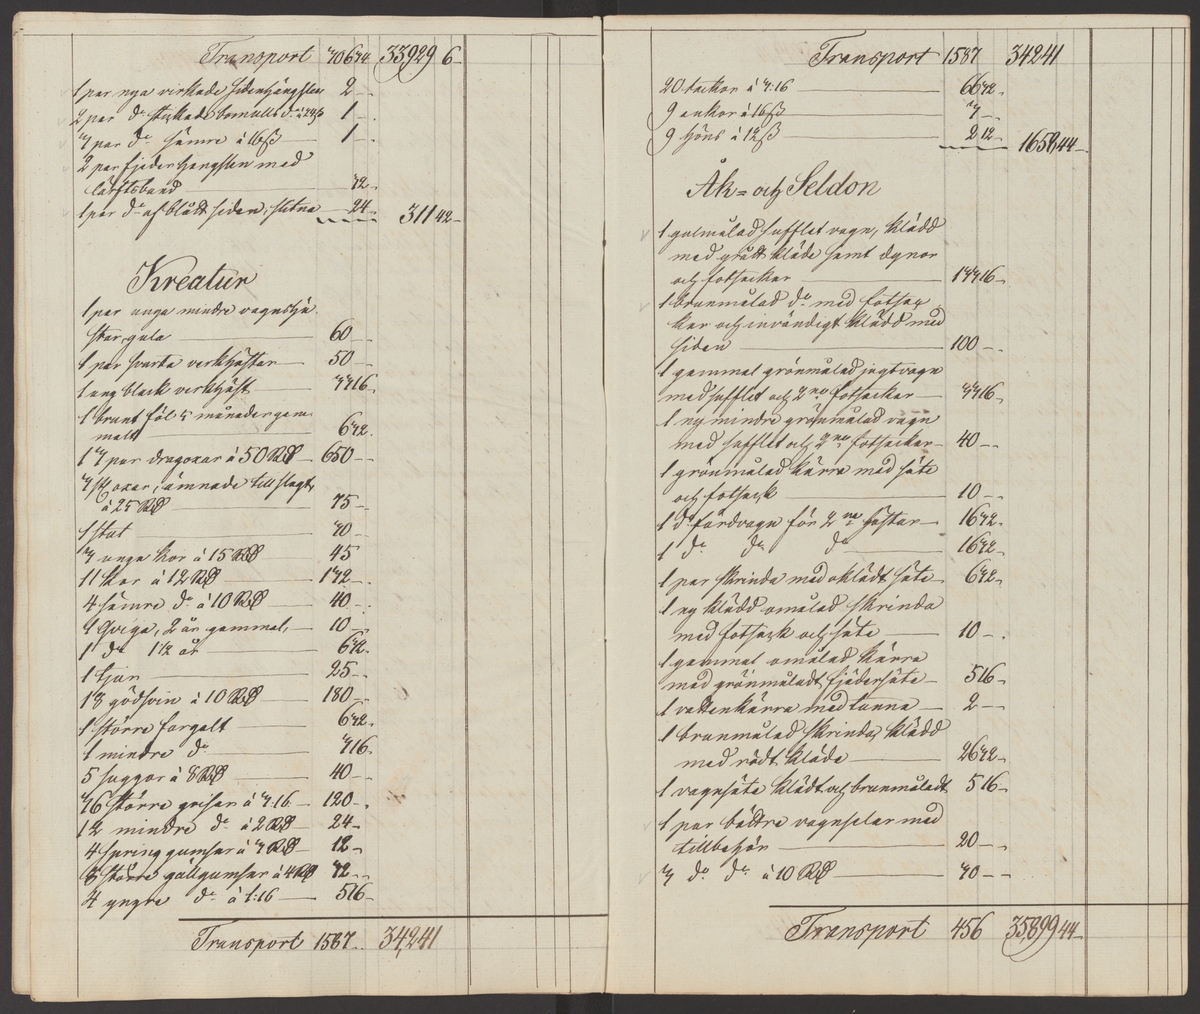 Transport 306 34 33,929 6
1 par nya virkade sidenhängslen 2 —
2 par do stickade bomulls do à 24ß 1 —
3 par do sämre à 16ß 1 —
2 par fjederhängslen med
lärftsband 32
1 par do af blått siden, slitna 24 311 42
Kreatur
1 par unga mindre vagnshä-
star, gula 60 —
1 par svarta verkhästar 50 —
1 ung black verkhäst 33 16
1 brunt föl 5 månader gam-
malt 6 32
13 par dragoxar à 50 RD 650 —
3 st oxar, ämnade till slagt,
à 25 RD 75 —
1 stut 30 —
3 unga kor à 15 RD 45
11 kor à 12 RD 132 —
4 sämre do à 10 RD 40 —
1 Qviga, 2 år gammal, 10 —
1 do 1 1/2 år 6 32
1 tjur 25 —
18 gödsvin à 10 RD 180 —
1 större fargalt 6 32
1 mindre do 3 16
5 suggor à 8 RD 40 —
36 större grisar à 3:16 120 —
12 mindre do à 2 RD 24 —
4 springgumsar à 3 RD 12 —
8 större gällgumsar à 4 RD 32 —
4 yngre do à 1:16 5 16
Transport 1587 34,241
Transport 1587 34241
20 tackor à 3:16 66 32
9 ankor à 16ß 3 —
9 höns à 12ß 2 12 1658 44
Åk- och Seldon
1 gulmålad sufflet vagn, klädd
med grått kläde samt dynor
och fotsäckar 133 16
1 brunmålad do med fotsäc-
kar och invändigt klädd med
siden 100 —
1 gammal grönmålad jagtvagn
med sufflet och 2ne fotsäckar 33 16
1 ny mindre grönmålad vagn
med sufflet och 2ne fotsäckar 40 —
1 grönmålad kärra med säte
och fotsäck 10 —
1 do färdvagn för 2ne hästar 16 32
1 do do do 16 32
1 par skrinda med oklädt säte 6 32
1 ny klädd omålad skrinda
med fotsäck och säte 10 —
1 gammal omålad kärra
med grönmåladt fjädersäte 5 16
1 vattenkärra med tunna 2 —
1 brunmålad skrinda, klädd
med rödt kläde 26 32
1 vagnsäte klädt och brunmåladt 5 16
1 par bättre vagnselar med
tillbehör 20 —
3 do do à 10 RD 30 —
Transport 456 35,899 44